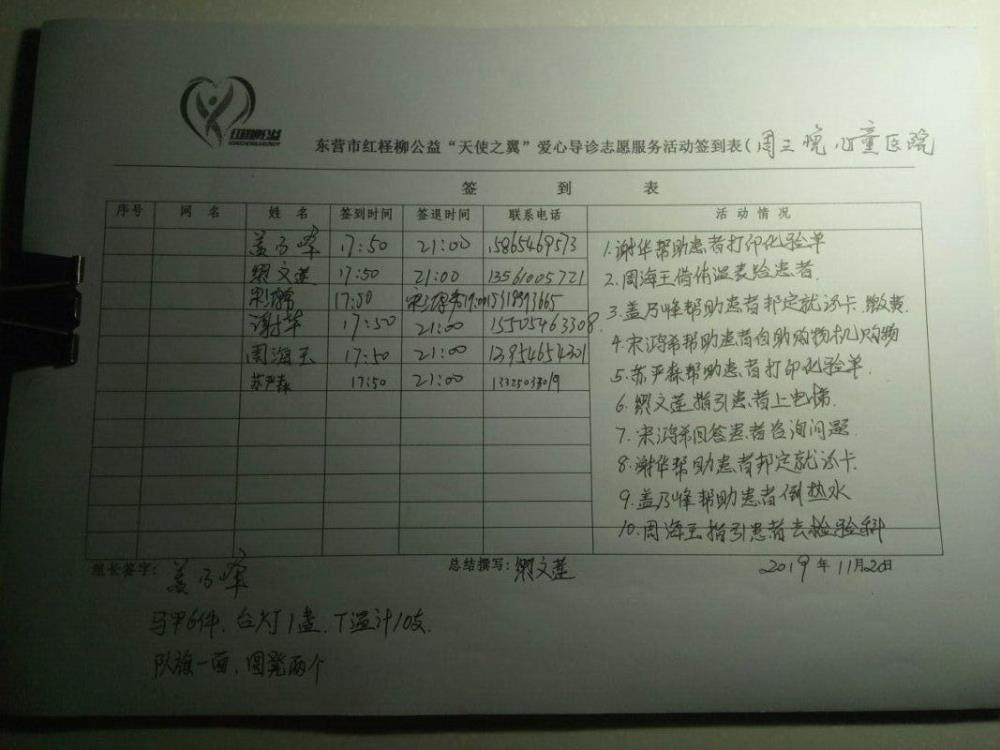 红柽柳公益
东营市红柽柳公益“天使之翼”爱心导诊志愿服务活动签到表(周三晚 儿童医院
签 到 表
序号 网 名 姓 名 签到时间 签退时间 联系电话 活 动 情 况
盖乃峰 17:50 21:00 15865469573
文莲 17:50 21:00 13561005721
宋鸿希 17:50
谢华 17:50 21:00 15505463308
周海玉 17:50 21:00 13954654301
苏严森 17:50 21:00
1.谢华帮助患者打印化验单
2.周海玉借体温表给患者.
3.盖乃峰帮助患者邦定就诊卡.缴费.
4.宋鸿希帮助患者自助购物机购物
5.苏严森帮助患者打印化验单.
6.文莲指引患者上电梯.
7.宋鸿希回答患者咨询问题.
8.谢华帮助患者邦定就诊卡.
9.盖乃峰帮助患者倒热水
10.周海玉指引患者去检验科
组长签字: 盖乃峰 总结撰写: 文莲 2019年11月20日
马甲6件.台灯1盏.T温计10支.
队旗一面、圆凳两个